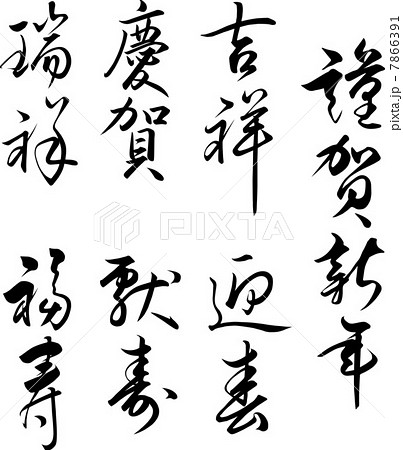 謹賀新年
吉祥
迎春
慶賀
献寿
瑞祥
福寿
PIXTA
pixta.jp - 7866391